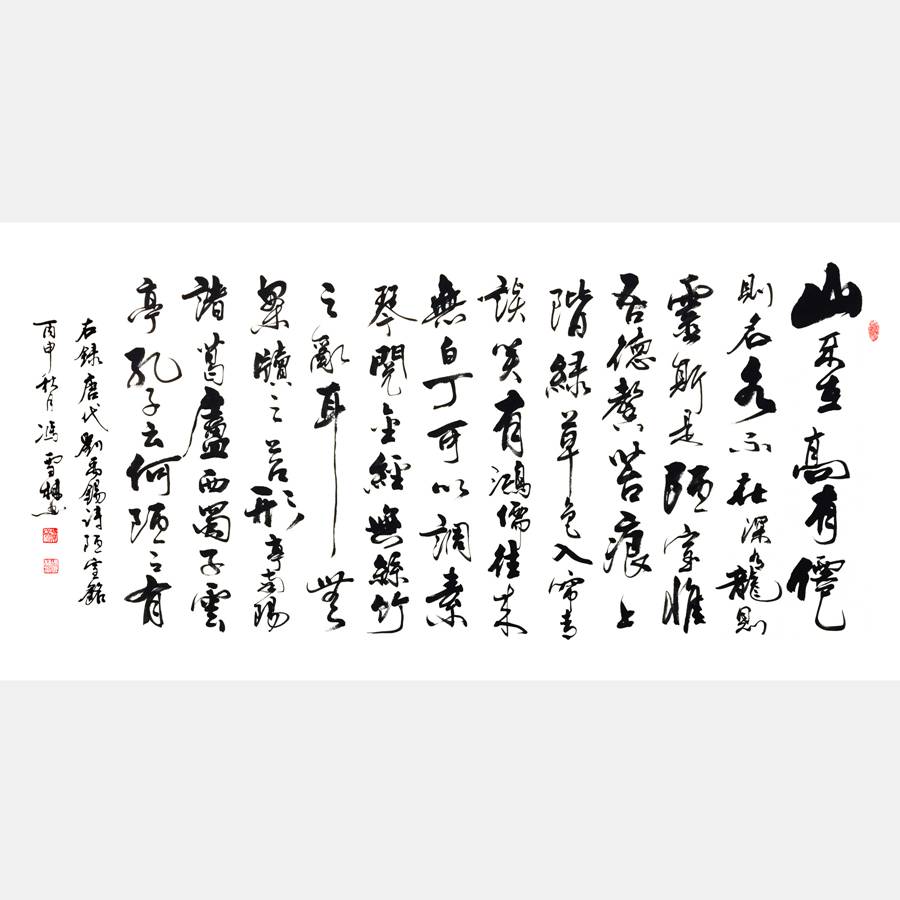 山不在高有僊
則名水不在深有龍則
靈斯是陋室惟
吾德馨苔痕上
階緑草色入簾青
談笑有鴻儒往来
無白丁可以調素
琴閲金經無絲竹
之亂耳無
案牘之勞形南陽
諸葛廬西蜀子雲
亭孔子云何陋之有
右録唐代劉禹錫詩陋室銘
丙申秋月馮雪書